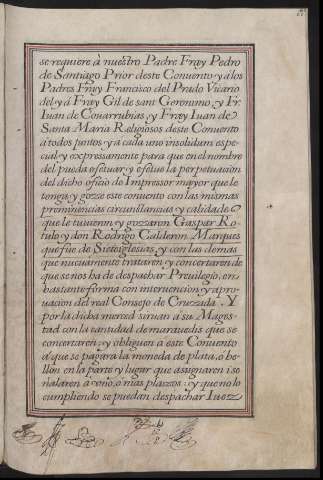 se requiere à nuestro Padre Fray Pedro
de Santiago Prior deste Conuento y à los
Padres Fray Francisco del Prado Vicario
del y à Fray Gil de sant Geronimo, y Fr.
Iuan de Couarrubias, y Fray Iuan de
Santa Maria Religiosos deste Conuento
a todos juntos y a cada uno insolidum espe-
cial y expressamente para que en el nombre
del pueda efetuar y efetue la perpetuacion
del dicho oficio de Impressor mayor que le
tenga y goze este conuento con las mismas
preminencias circunstancias y calidades
que le tuuieron y gozaron Gaspar Ro-
tulo y don Rodrigo Calderon Marques
que fue de Sieteiglesias, y con las demas
que nueuamente trataren y concertaren de
que se nos ha de despachar Preuilegio, en
bastante forma con interuencion y apro-
uacion del real Consejo de Cruzada. Y
por la dicha merced siruan a su Mages-
tad con la cantidad de marauedis que se
concertaren, y obliguen a este Conuento
a que se pagara la moneda de plata, o be-
llon en la parte y lugar que asignaren i se
ñalaren a vno, o mas plazos y que no lo
cumpliendo se puedan despachar Iuez